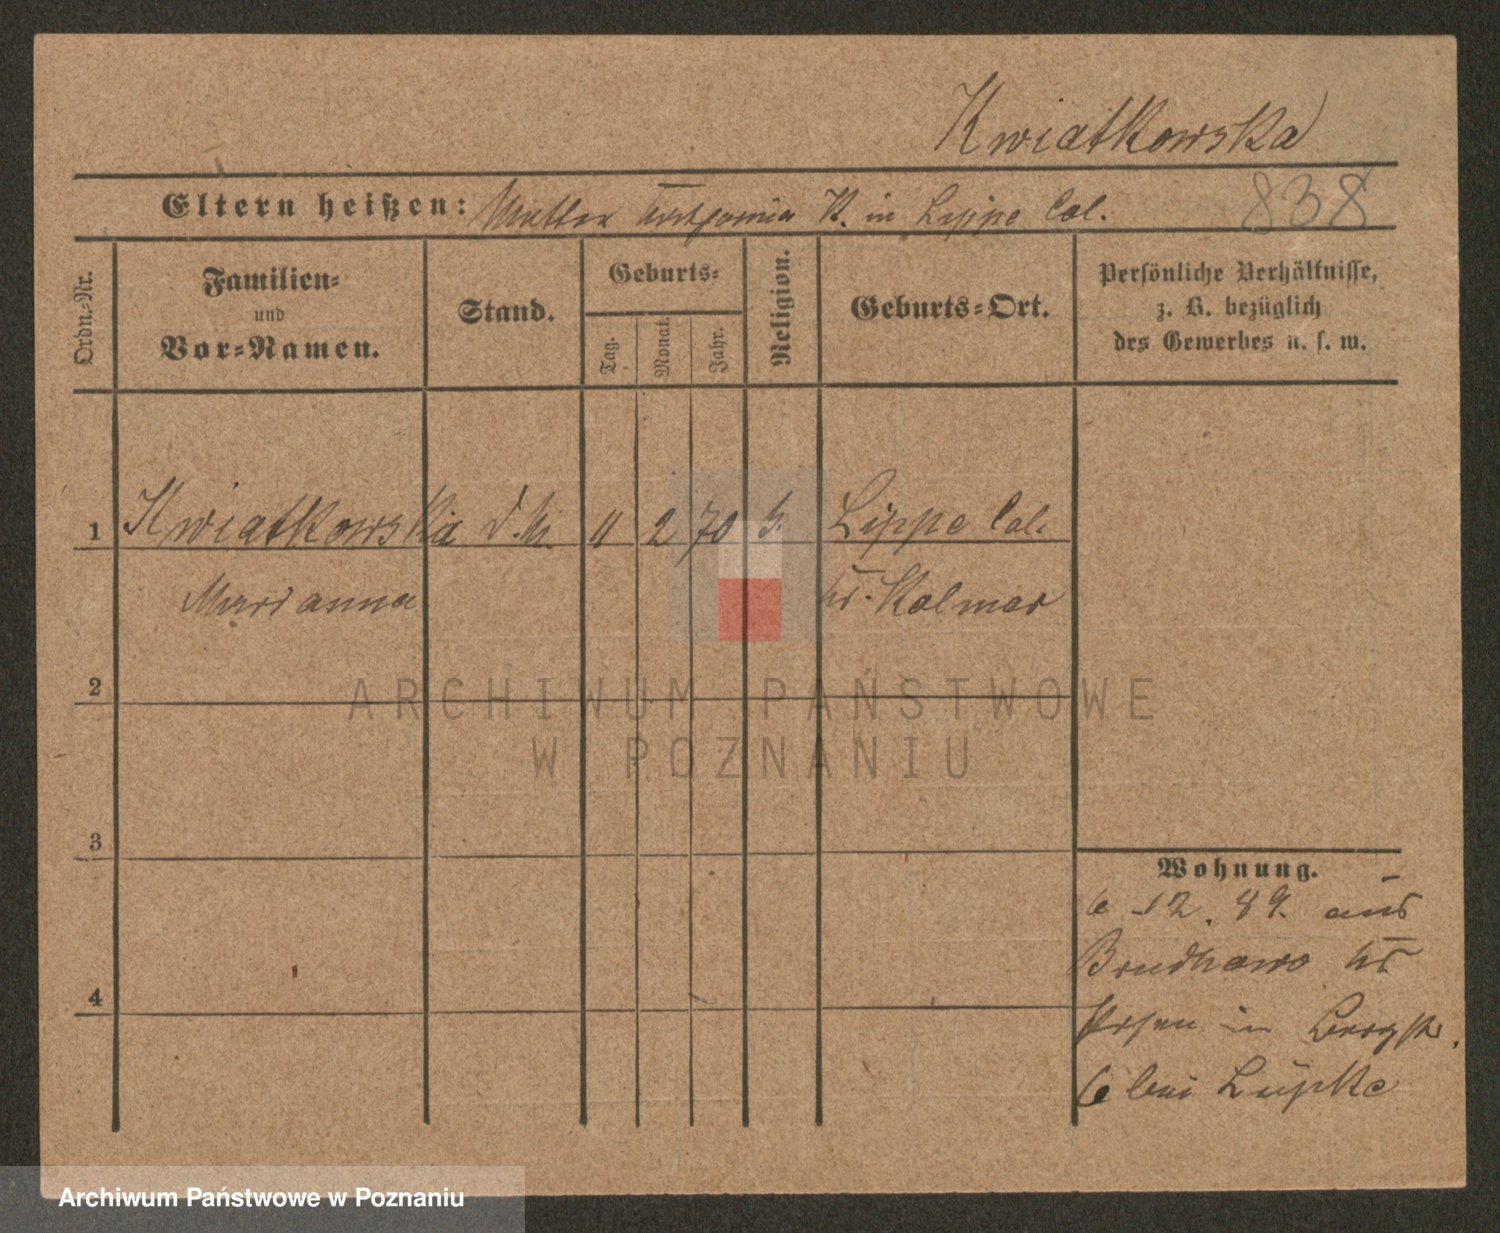 Kwiatkowska
Eltern heißen: Mutter K. in Lippe Col.
838
Ordn.-Nr.
Familien-
und
Vor-Namen.
Stand.
Geburts-
Tag.
Monat.
Jahr.
Religion.
Geburts-Ort.
Persönliche Verhältnisse,
z. B. bezüglich
des Gewerbes u. s. w.
1 Kwiatkowska d. M. 11 2 70 Lippe Col.
Marianna Kolmar
2
ARCHIWUM PAŃSTWOWE
W POZNANIU
3
Wohnung.
6 12. 89. aus
4
Posen in Bergstr.
6 bei Lüpke
Archiwum Państwowe w Poznaniu